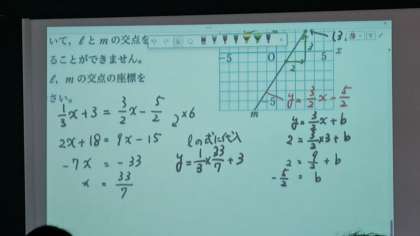 いて，ℓとmの交点を
ることができません。
ℓ，mの交点の座標を
さい。
1/3x+3 = 3/2x-5/2 2×6
2x+18 = 9x-15
-7x = -33
x = 33/7
ℓの式に代入
y=1/3×33/7+3
-5 O 5
x
-5
m
y=3/2x-5/2
y=3/2x+b
2=3/2×3+b
2=9/2+b
-5/2=b